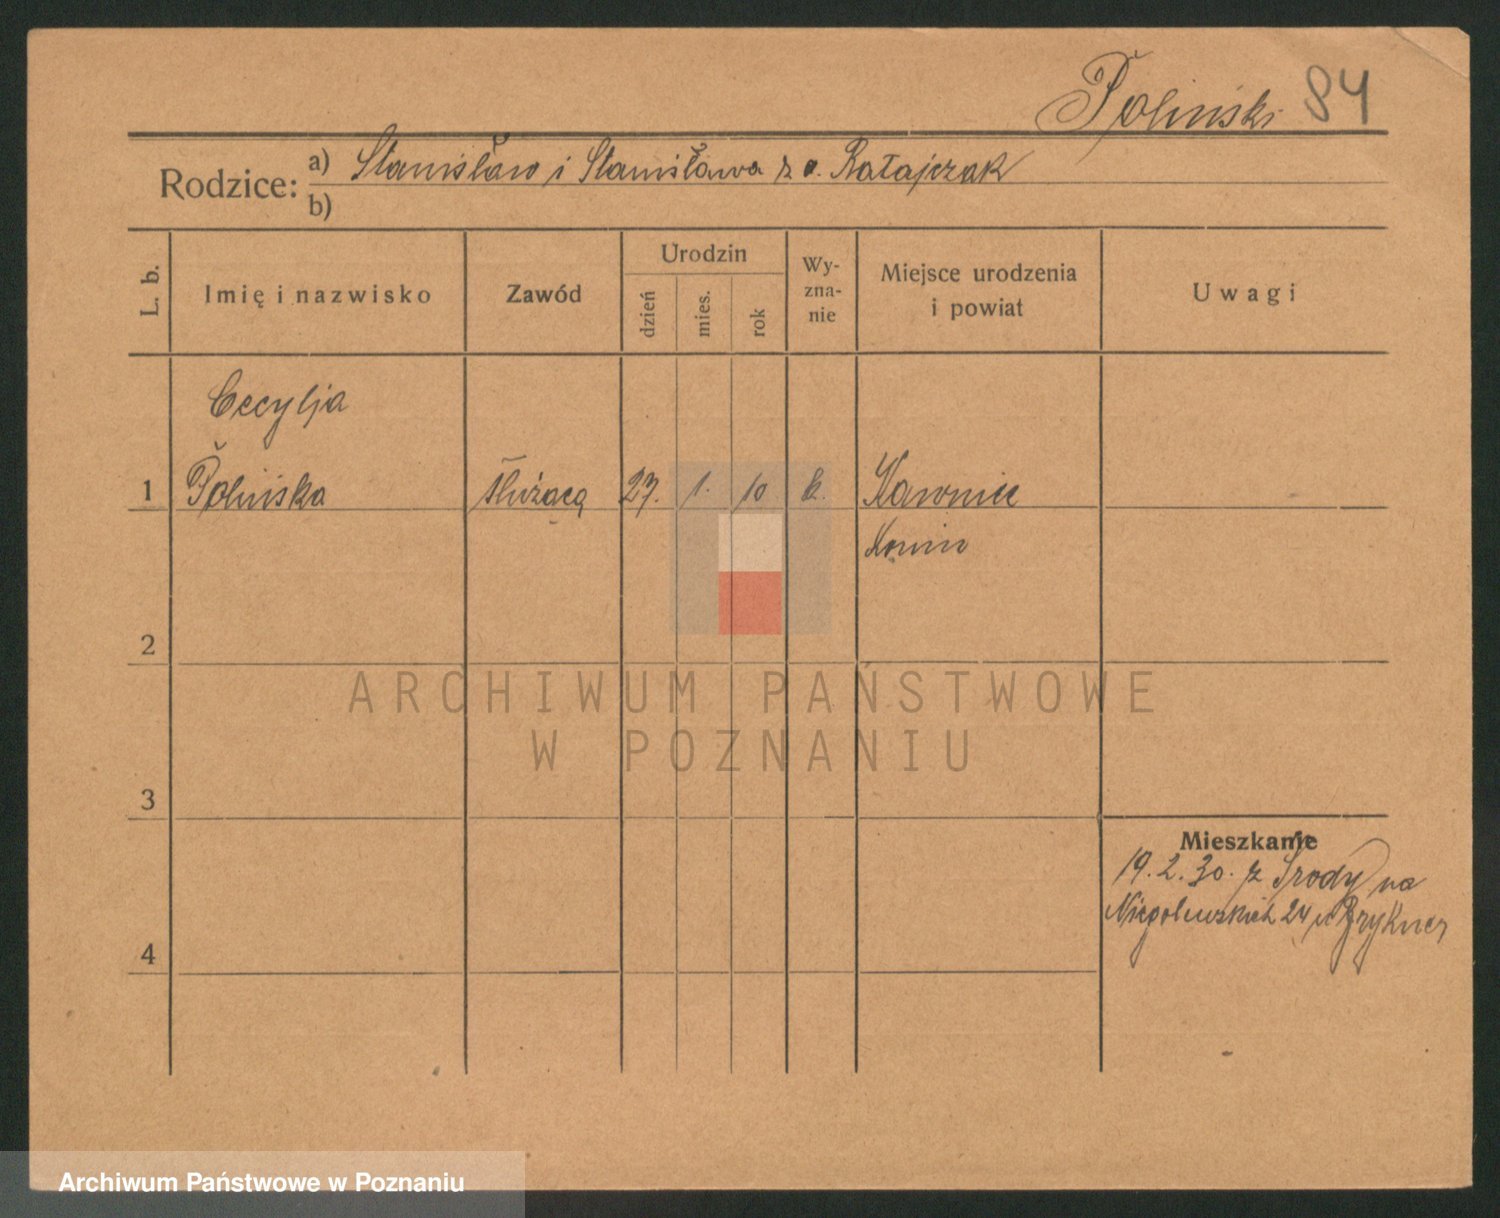 Poliński 84
Rodzice: a) Stanisław i Stanisława z d. Ratajczak
b)
L. b.
Imię i nazwisko
Zawód
Urodzin
dzień
mies.
rok
Wy-
zna-
nie
Miejsce urodzenia
i powiat
Uwagi
Cecylja
1 Polińska służąca 27. 1. 10 k. Kawnice
Konin
2
ARCHIWUM PAŃSTWOWE
W POZNANIU
3
Mieszkanie
19.2.30. z Środy na
Niegolewskich 24 u Brykner
4
Archiwum Państwowe w Poznaniu